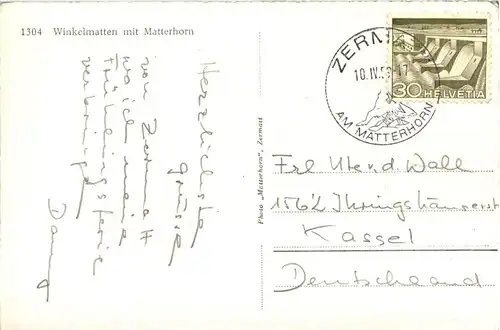 1304 Winkelmatten mit Matterhorn
Herzlichste
Grüsse
von Zermatt
wo ich meine
Frühlingsferie
verbringe
Photo „Matterhorn“, Zermatt
ZERMATT
10.IV.59-17
AM MATTERHORN
30 HELVETIA
Frl Ute v.d. Wall
Ihringshäuserst
Kassel
Deutschland